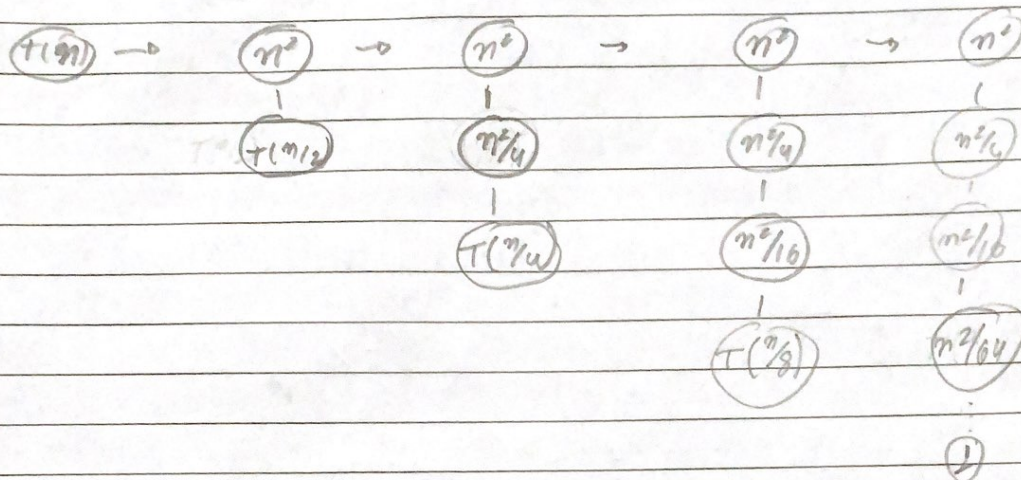 T(n) → n² → n² → n² → n²
T(n/2) n²/4 n²/4 n²/4
T(n/4) n²/16 n²/16
T(n/8) n²/64
1